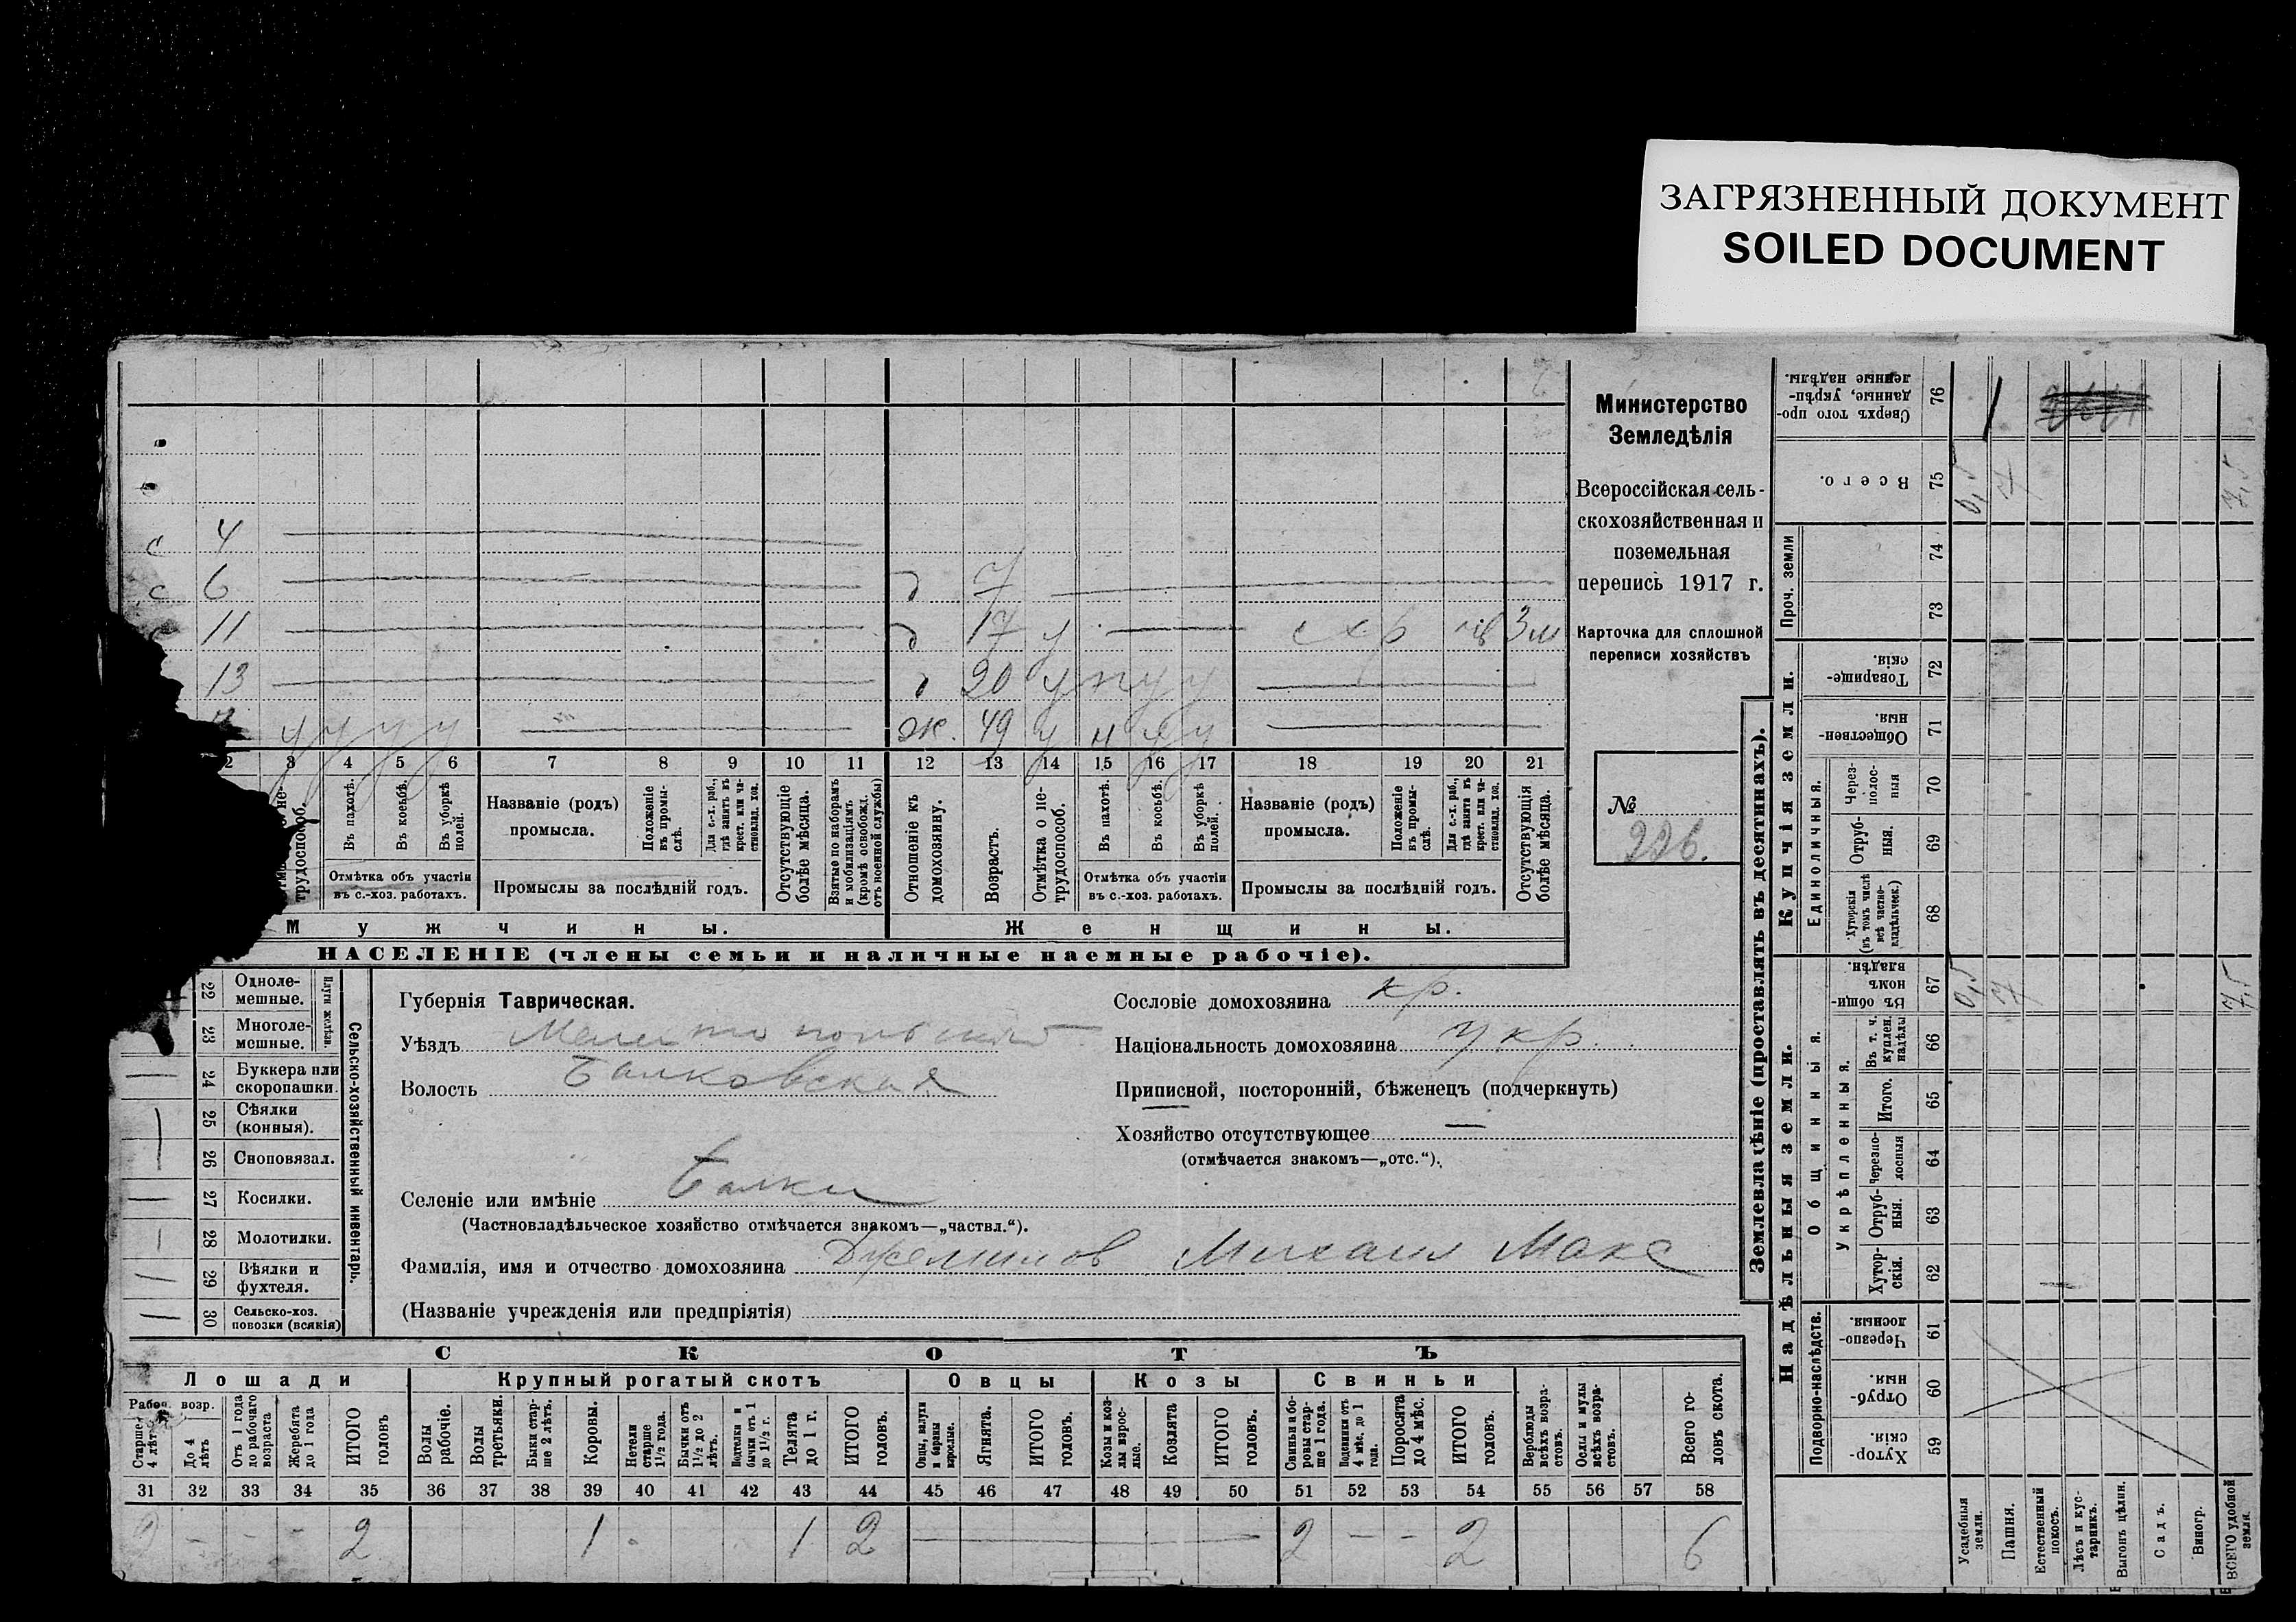 ЗАГРЯЗНЕННЫЙ ДОКУМЕНТ
SOILED DOCUMENT
Министерство
Земледѣлія
Всероссійская сель-
скохозяйственная и
поземельная
перепись 1917 г.
Карточка для сплошной
переписи хозяйствъ
№
226.
с 4
с 6 д 7
с 11 д 17 у схр 3 м
13 д 20 у н у у
у у у у ж. 49 у н у у
2 3 4 5 6 7 8 9 10 11 12 13 14 15 16 17 18 19 20 21
трудоспособ.
Въ пахотѣ.
Въ косьбѣ.
Въ уборкѣ полей.
Отмѣтка объ участіи
въ с.-хоз. работахъ.
Названіе (родъ)
промысла.
Положеніе въ промы-слѣ.
Для с.-х. раб., гдѣ занятъ въ крест. или ча-стновлад. хоз.
Промыслы за послѣдній годъ.
Отсутствующіе болѣе мѣсяца.
Взятые по наборамъ и мобилизаціямъ (кромѣ освобожд. отъ военной службы)
Отношеніе къ домохозяину.
Возрастъ.
Отмѣтка о не-трудоспособ.
Въ пахотѣ.
Въ косьбѣ.
Въ уборкѣ полей.
Отмѣтка объ участіи
въ с.-хоз. работахъ.
Названіе (родъ)
промысла.
Положеніе въ промы-слѣ.
Для с.-х. раб., гдѣ занята въ крест. или ча-стновлад. хоз.
Промыслы за послѣдній годъ.
Отсутствующія болѣе мѣсяца.
Мужчины.
Женщины.
НАСЕЛЕНІЕ (члены семьи и наличные наемные рабочіе).
22 Одноле-мешные.
23 Многоле-мешные.
Плуги желѣзн.
24 Буккера или скоропашки.
25 Сѣялки (конныя).
26 Сноповязал.
27 Косилки.
28 Молотилки.
29 Вѣялки и фухтеля.
30 Сельско-хоз. повозки (всякія)
Сельско-хозяйственный инвентарь.
Губернія Таврическая.
Уѣздъ Мелитопольский
Волость Балковская
Селеніе или имѣніе Балки
(Частновладѣльческое хозяйство отмѣчается знакомъ—„частвл.“).
Фамилія, имя и отчество домохозяина Джелилов Михаил Макс
(Названіе учрежденія или предпріятія)
Сословіе домохозяина кр.
Національность домохозяина укр.
Приписной, посторонній, бѣженецъ (подчеркнуть)
Хозяйство отсутствующее —
(отмѣчается знакомъ—„отс.“).
СКОТЪ
Лошади Крупный рогатый скотъ Овцы Козы Свиньи
Рабоч. возр.
Старше 4 лѣтъ
До 4 лѣтъ
Отъ 1 года до рабочаго возраста
Жеребята до 1 года
ИТОГО головъ
Волы рабочіе.
Волы третьяки.
Быки стар-ше 2 лѣтъ.
Коровы.
Нетели старше 1 1/2 года.
Бычки отъ 1 1/2 до 2 лѣтъ.
Подтелки и бычки отъ 1 до 1 1/2 г.
Телята до 1 г.
ИТОГО головъ.
Овцы, валухи и бараны взрослые.
Ягнята.
ИТОГО головъ.
Козы и коз-лы взрос-лые.
Козлята
ИТОГО головъ.
Свиньи и бо-ровы стар-ше 1 года.
Подсвинки отъ 4 мѣс. до 1 года.
Поросята до 4 мѣс.
ИТОГО головъ.
Верблюды всѣхъ возра-стовъ.
Ослы и мулы всѣхъ возра-стовъ.
Всего го-ловъ скота.
31 32 33 34 35 36 37 38 39 40 41 42 43 44 45 46 47 48 49 50 51 52 53 54 55 56 57 58
2 - - - 2 1 1 2 2 - - 2 6
Землевладѣніе (проставлять въ десятинахъ).
Надѣльныя земли.
Купчія земли.
Проч. земли
Подворно-наслѣдств.
Общинныя.
Укрѣпленныя.
Единоличныя.
Хутор-скія. 59
Отруб-ныя. 60
Черезпо-лосныя. 61
Хутор-скія. 62
Отруб-ныя. 63
Черезпо-лосныя 64
Итого. 65
Въ т. ч. куплен. надѣлы 66
Въ общин-номъ владѣн. 67
Хуторскія (въ томъ числѣ всѣ частно-владѣльческ.) 68
Отруб-ныя. 69
Через-полос-ныя 70
Обществен-ныя. 71
Товарище-скія. 72
73
74
Всего. 75
Сверхъ того про-данные, укрѣп-ленные надѣлы. 76
Усадебныя земли.
Пашня.
Естественный покосъ.
Лѣсъ и кус-тарникъ.
Выгонъ цѣлин.
Садъ.
Виногр.
ВСЕГО удобной земли.
0,5 7 7,5
0,5 7 7,5